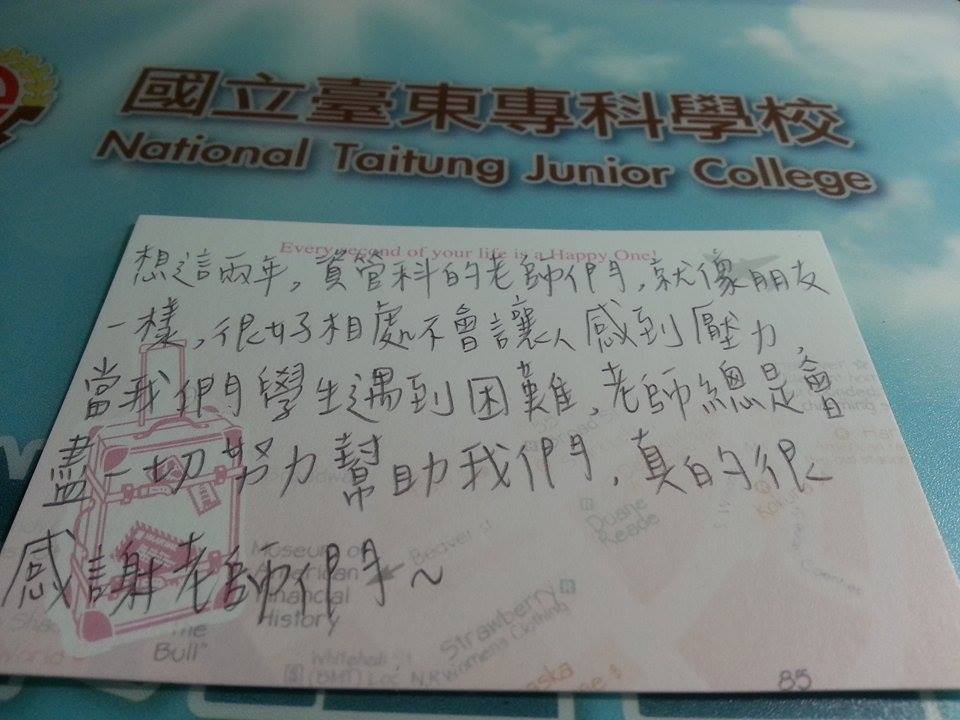 國立臺東專科學校
National Taitung Junior College
Every second of your life is a Happy One!
想這兩年,資管科的老師們,就像朋友
一樣,很好相處不會讓人感到壓力,
當我們學生遇到困難,老師總是會
盡一切努力幫助我們,真的很
感謝老師們~
Duane
Reade
Museum of
American
Financial
History
Beaver st
Strawberry
Womens Clothing
The
Bull"
Whitehall st
(BMT) Loc N.RW
85